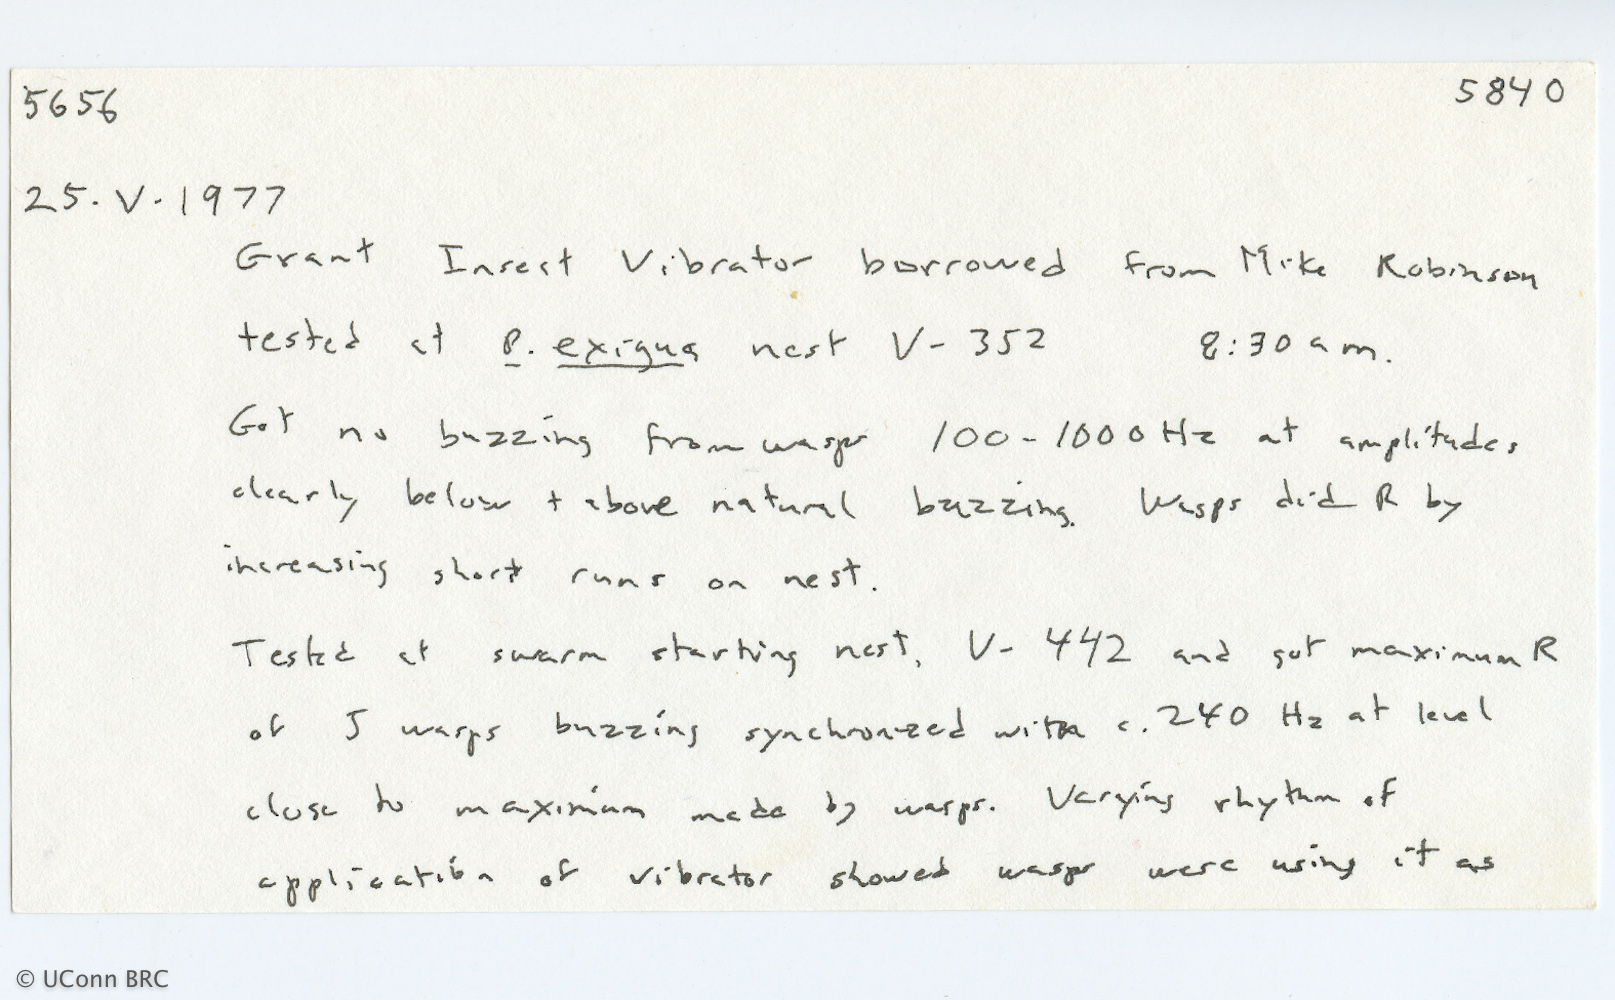 5656 5840
25. V. 1977
Grant Insect Vibrator borrowed from Mike Robinson
tested at P. exigua nest V-352 8:30 am.
Got no buzzing from wasps 100-1000 Hz at amplitudes
clearly below + above natural buzzing. Wasps did R by
increasing short runs on nest.
Tested at swarm starting nest, V- 442 and got maximum R
of 5 wasps buzzing synchronized with c. 240 Hz at level
close to maximum made by wasps. Varying rhythm of
application of vibrator showed wasps were using it as
© UConn BRC